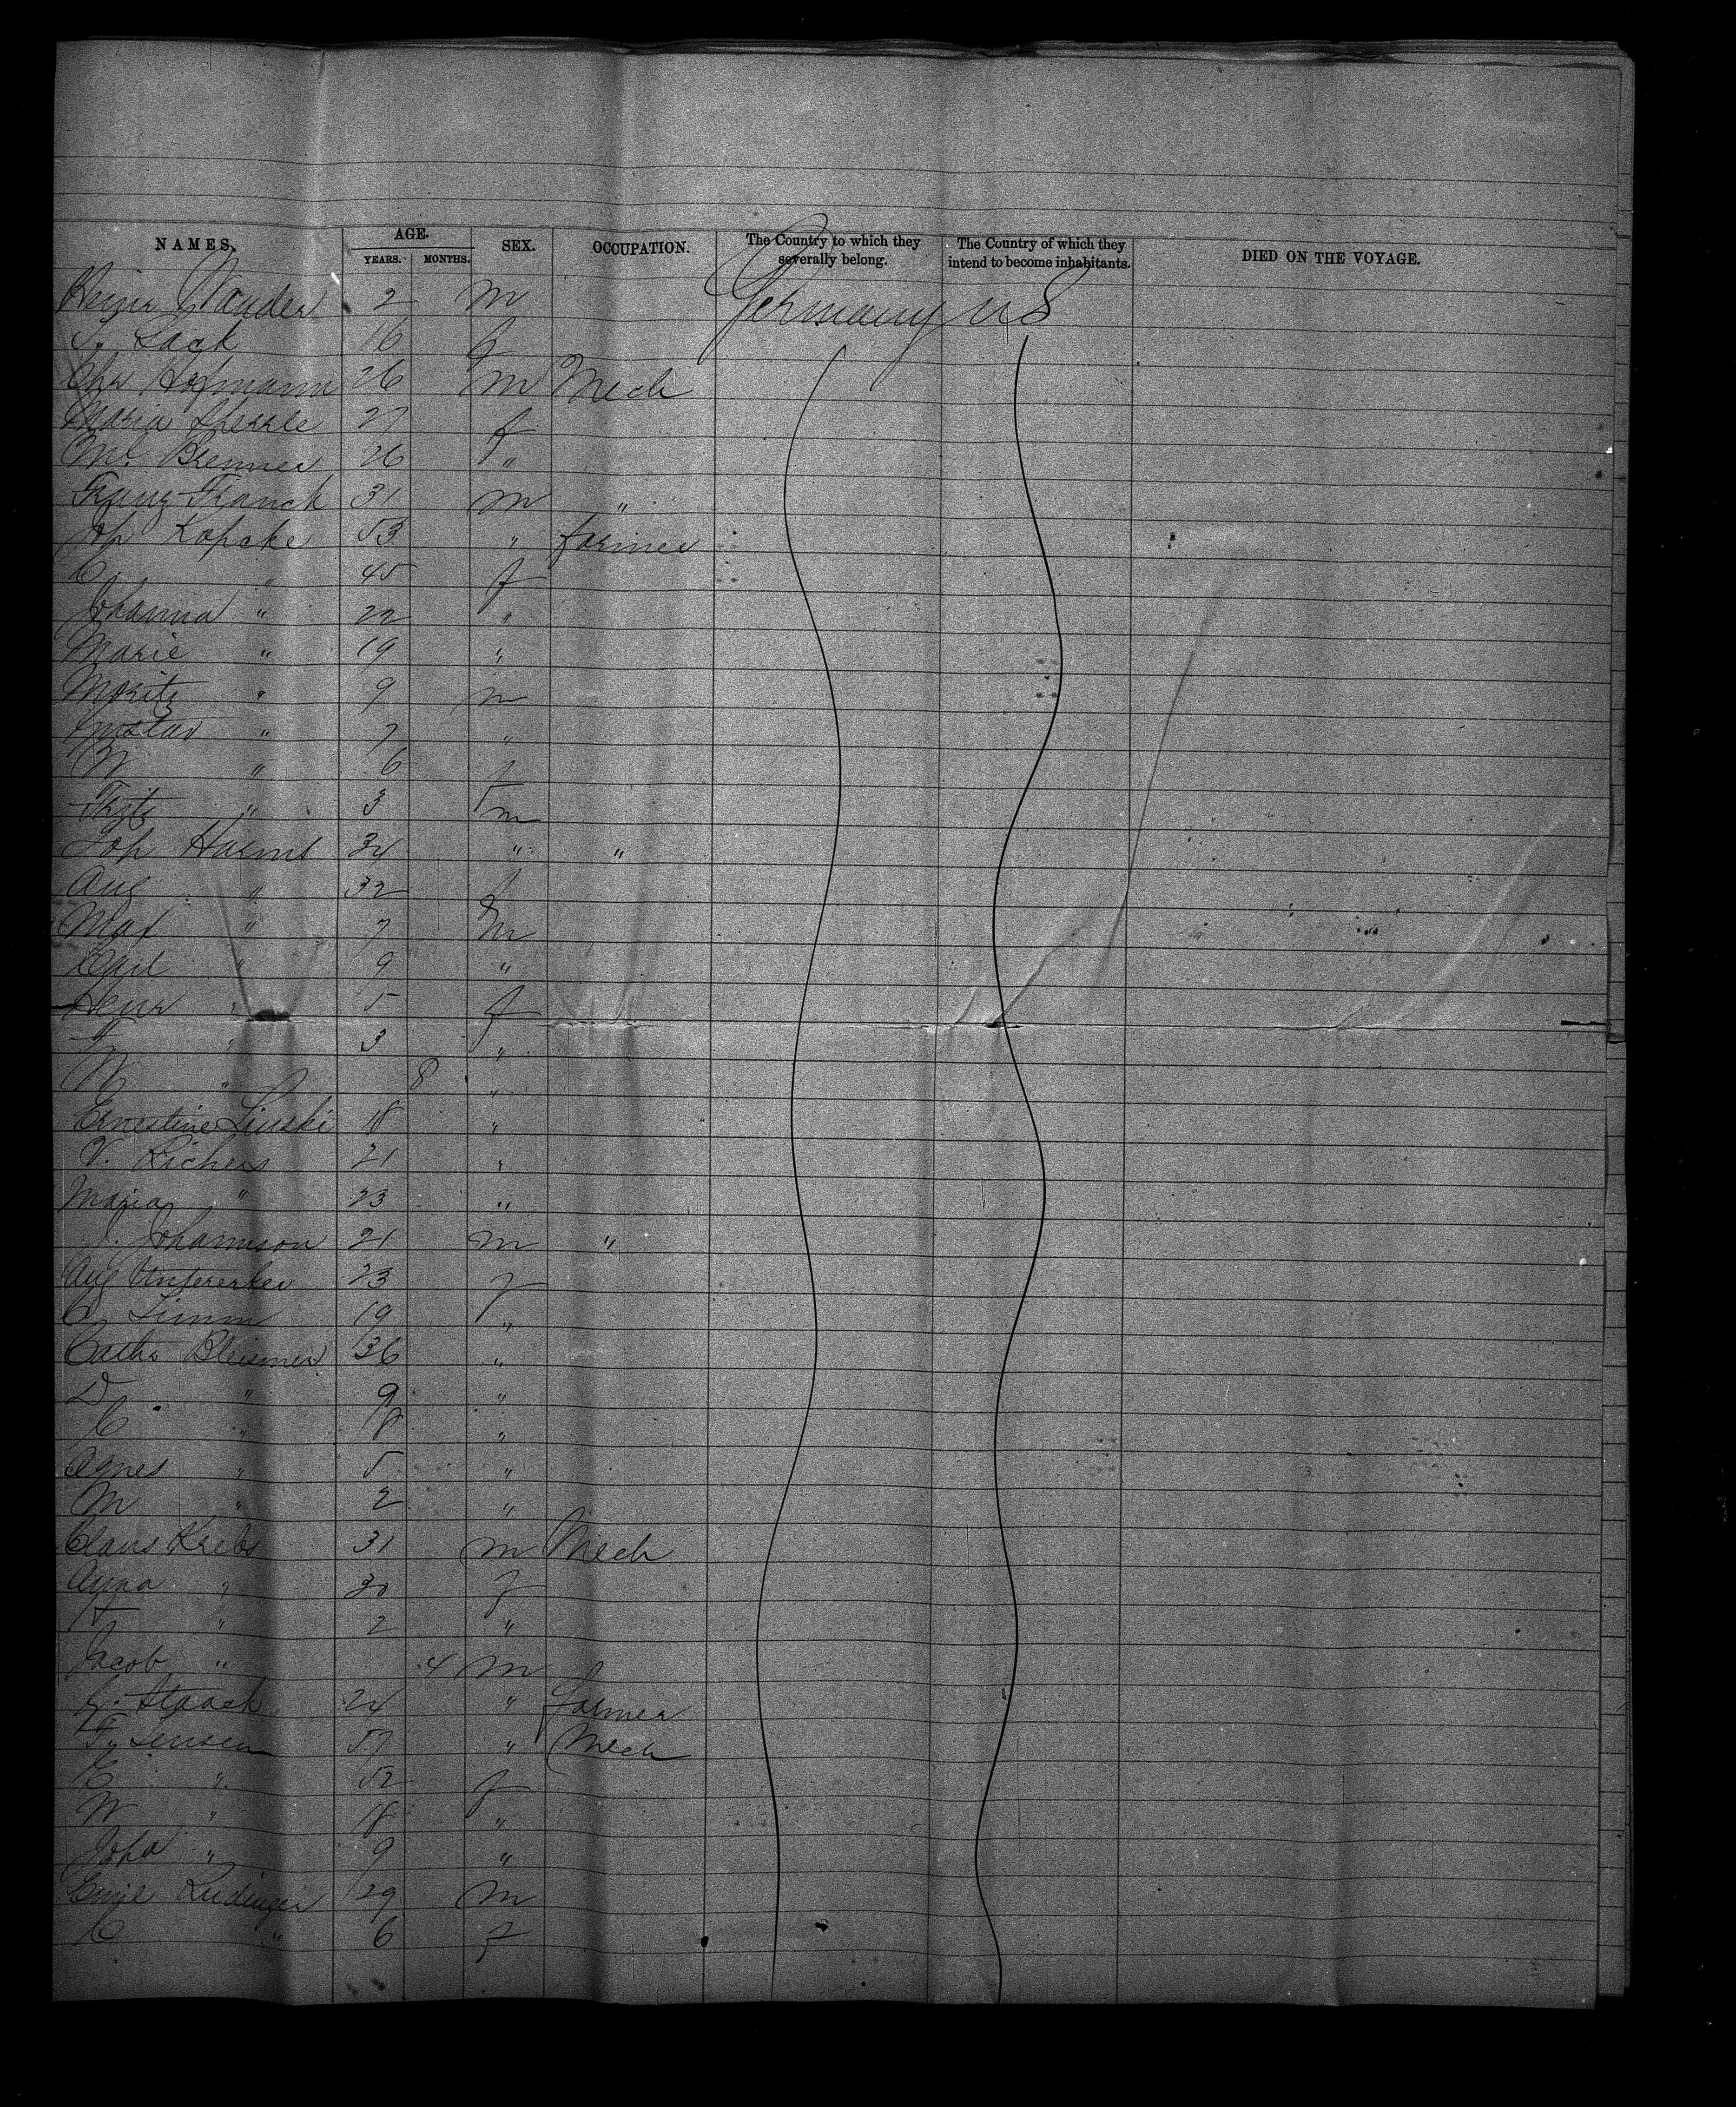 NAMES. AGE. SEX. OCCUPATION. The Country to which they severally belong. The Country of which they intend to become inhabitants. DIED ON THE VOYAGE.
YEARS. MONTHS.
Heinr Wander 2 m Germany U S
Lack 16 f
Chr Hofmann 26 m Mech
Maria Sperrle 27 f
M. Brenner 26 "
Franz Franck 31 m "
Joh Kopcke 53 " farmer
C. " 45 f
Johanna " 22 "
Marie " 19 "
Moritz " 9 m
Gustav " 7 "
W " 6 f
Fritz " 3 m
Joh Harms 34 " "
Aug " 32 f
Max " 7 m
Carl " 9 "
Henr " 5 f
" 3 "
W " 8 "
Ernestine Linski 18 "
V. Richers 21 "
Maria " 23 "
J. Johannson 21 m "
Aug 23 f
C. Timm 19 "
Cathr Bleismer 36 "
D " 9 "
C " 8 "
Agnes " 5 "
M " 2 "
Claus Krebs 31 m Mech
Anna " 30 f
H " 2 "
Jacob " 4 m
Staack 24 " farmer
F. Jensen 57 " Mech
C " 52 f
W " 18 "
Joha " 9 "
Emil Rudinger 29 m
C " 6 f